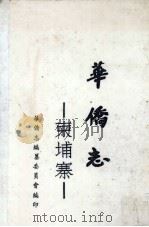 華僑志
—柬埔寨—
華僑志編纂委員會編印